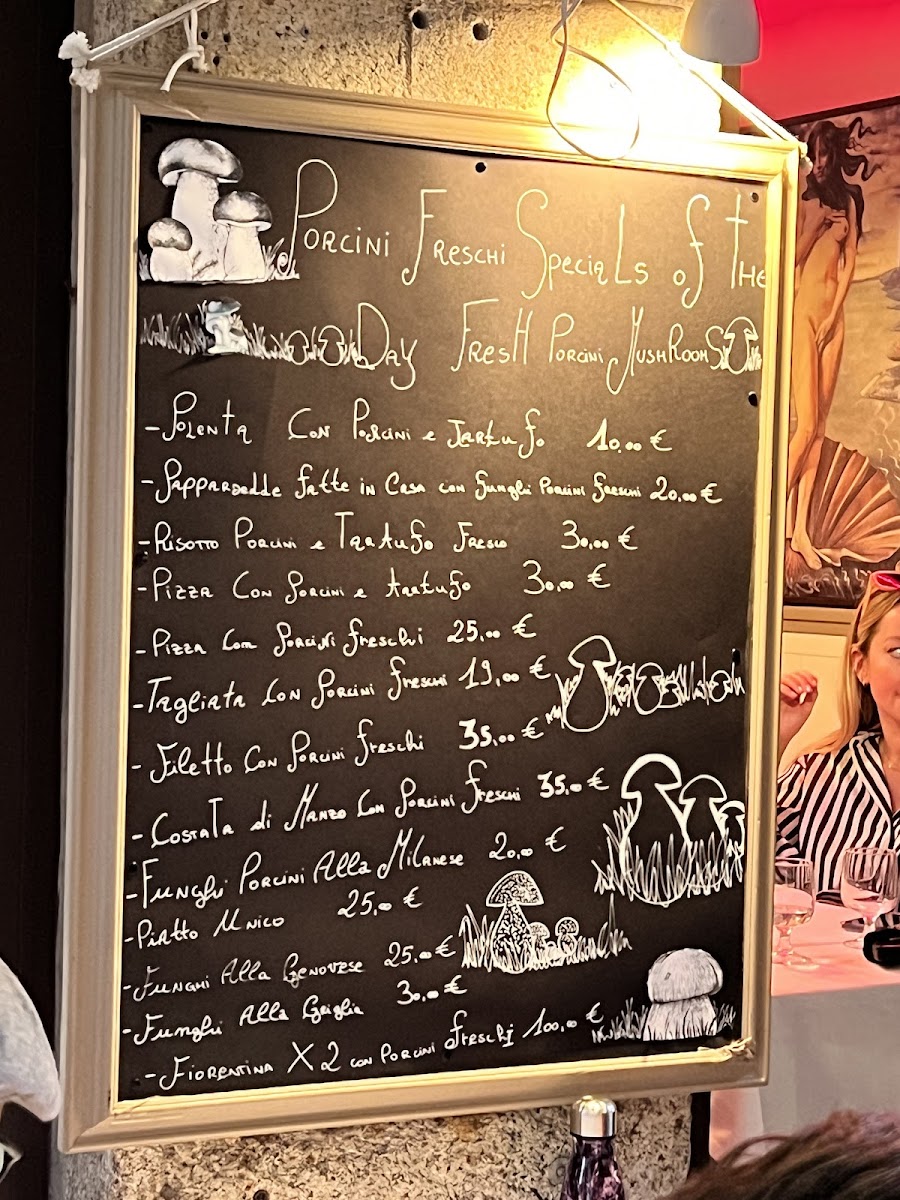 Porcini Freschi Specials of the
Day Fresh Porcini Mushrooms
- Polenta Con Porcini e Tartufo 10,00 €
- Pappardelle fatte in Casa con funghi Porcini freschi 20,00 €
- Risotto Porcini e Tartufo Fresco 30,00 €
- Pizza Con Porcini e tartufo 30,00 €
- Pizza Con Porcini freschi 25,00 €
- Tagliata Con Porcini freschi 19,00 €
- Filetto Con Porcini freschi 35,00 €
- Costata di Manzo Con Porcini freschi 35,00 €
- Funghi Porcini Alla Milanese 20,00 €
- Piatto Unico 25,00 €
- Funghi Alla Genovese 25,00 €
- Funghi Alla Griglia 30,00 €
- Fiorentina X 2 con Porcini freschi 100,00 €